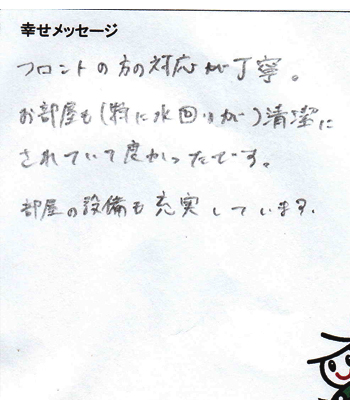 幸せメッセージ
フロントの方の対応が丁寧。
お部屋も(特に水回りが)清潔に
されていて良かったです。
部屋の設備も充実しています.